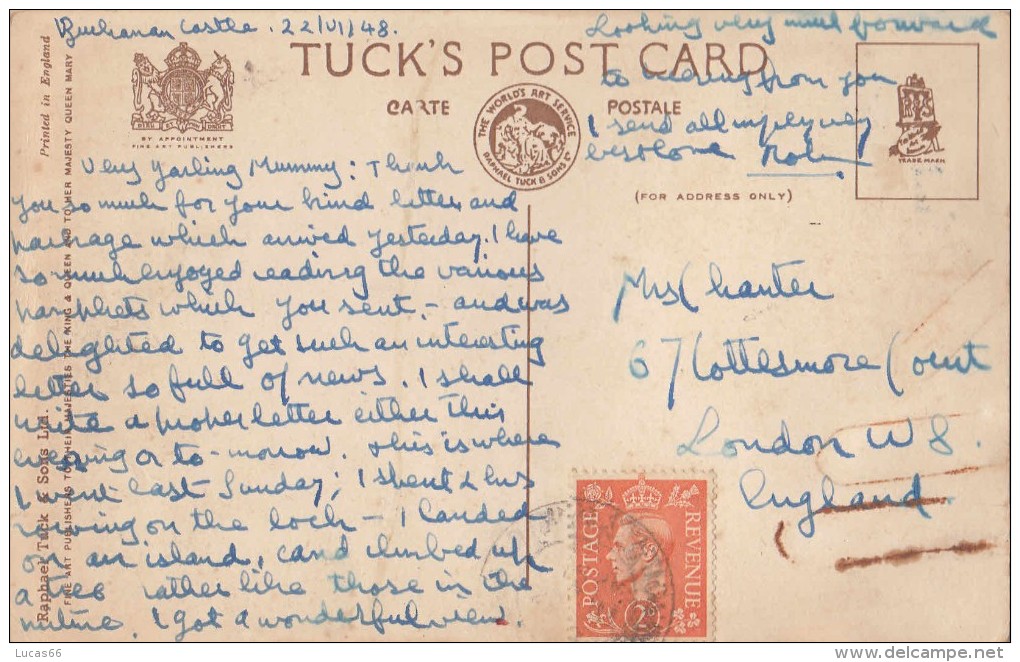 Buchanan Castle. 22/VI/48.
TUCK'S POST CARD
CARTE POSTALE
THE WORLD'S ART SERVICE
RAPHAEL TUCK & SONS LTD
DIEU DROIT
BY APPOINTMENT
FINE ART PUBLISHERS
TRADE MARK
(FOR ADDRESS ONLY)
Printed in England
Raphael Tuck & Sons Ltd.
FINE ART PUBLISHERS TO THEIR MAJESTIES THE KING & QUEEN AND TO HER MAJESTY QUEEN MARY
Very Darling Mummy: Thank
you so much for your kind letter and
package which arrived yesterday. I have
so much enjoyed reading the various
pamphlets which you sent, - and was
delighted to get such an interesting
letter so full of news. I shall
write a proper letter either this
evening or to-morrow. This is where
I went last Sunday; I spent 2 hrs
rowing on the loch - I landed
on an island, and climbed up
a tree rather like those in the
picture. I got a wonderful view.
Looking very much forward
to hearing from you
I send all my very very
best love
Mrs Chanter
67 Cottesmore Court
London W 8.
England.
POSTAGE REVENUE
2D
Lucas66
www.delcampe.net